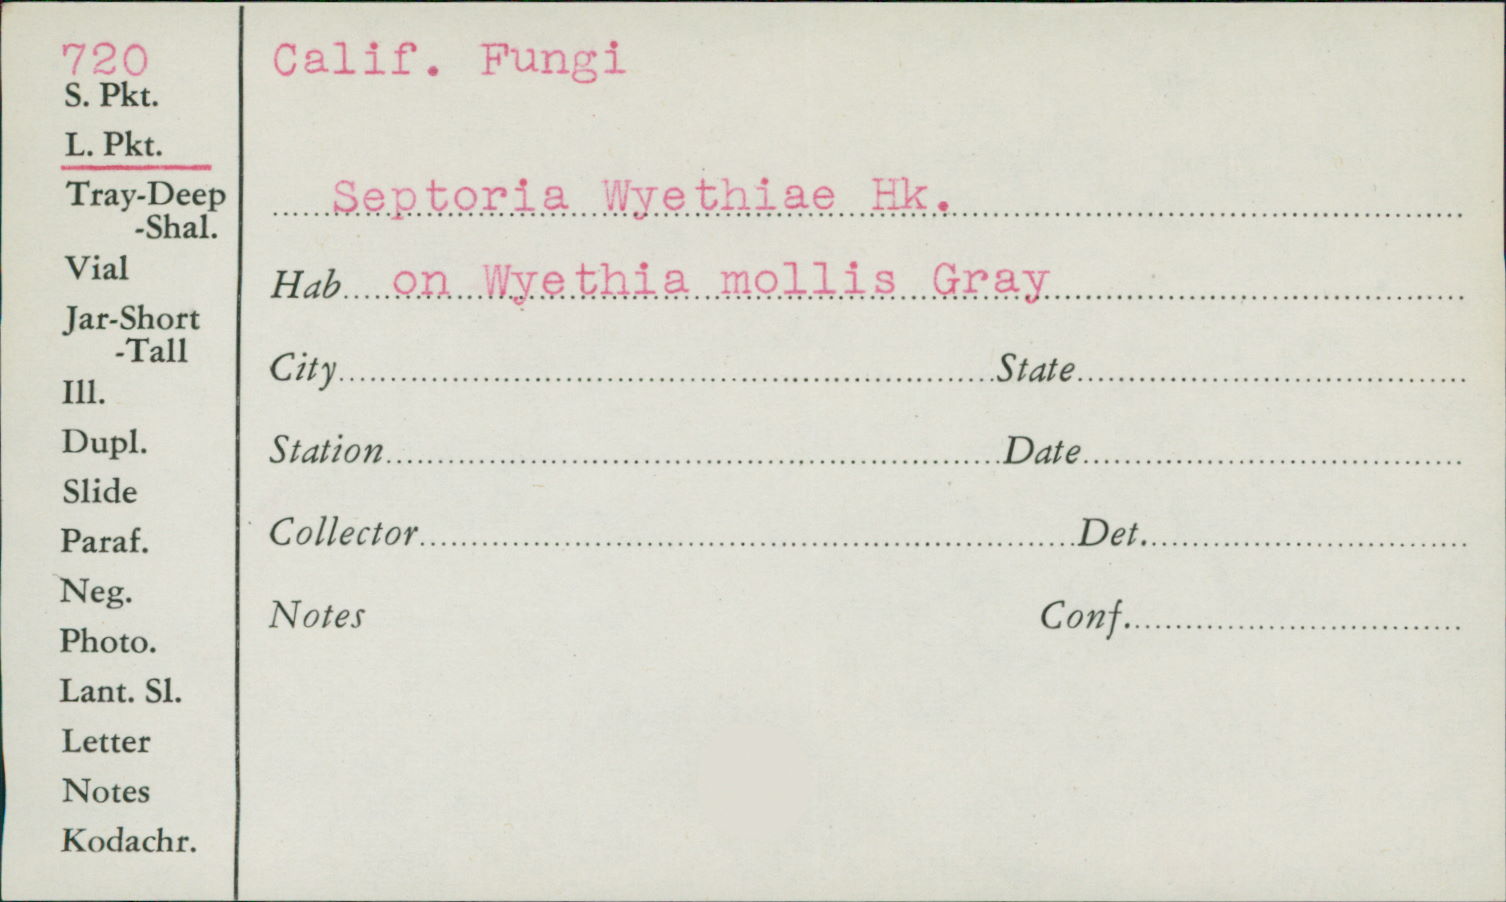 720
S. Pkt.
L. Pkt.
Tray-Deep
-Shal.
Vial
Jar-Short
-Tall
Ill.
Dupl.
Slide
Paraf.
Neg.
Photo.
Lant. Sl.
Letter
Notes
Kodachr.
Calif. Fungi
Septoria Wyethiae Hk.
Hab. on Wyethia mollis Gray
City State
Station Date
Collector Det.
Notes Conf.